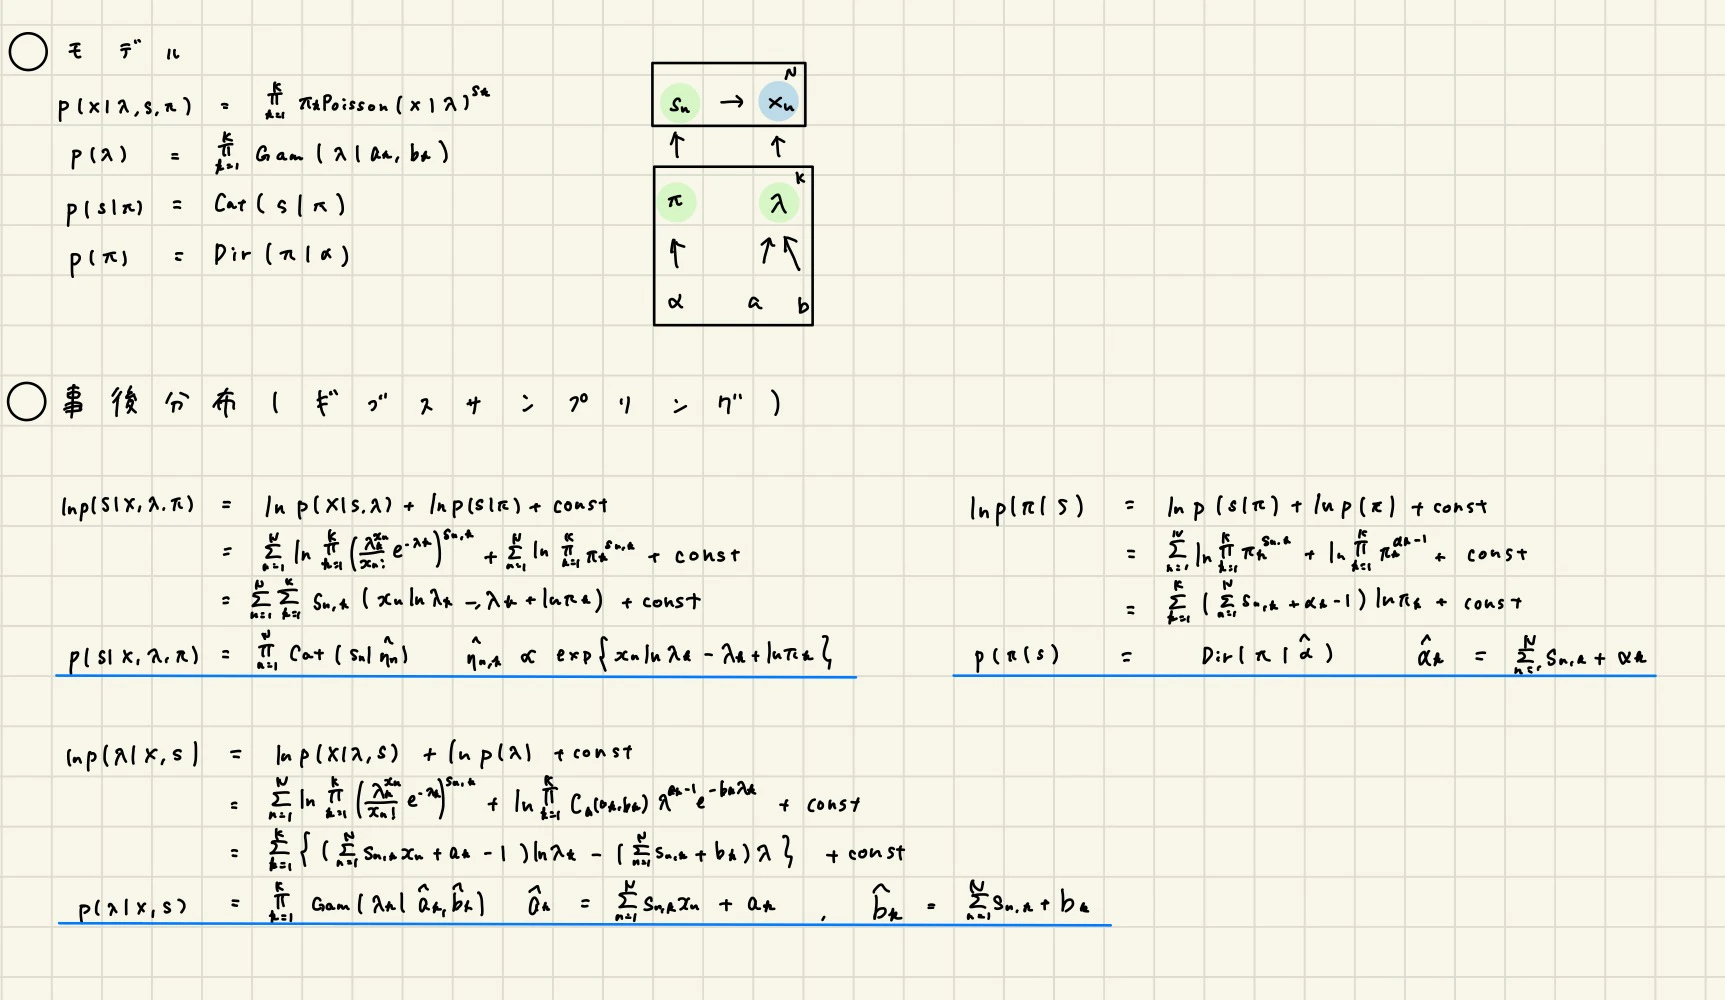 ○ モデル
p(x|λ,s,π) = ∏_{k=1}^{K} π_k Poisson(x|λ)^{s_k}
p(λ) = ∏_{k=1}^{K} Gam(λ|a_k, b_k)
p(s|π) = Cat(s|π)
p(π) = Dir(π|α)
N
s_n → x_n
↑ ↑
K
π λ
↑ ↑ ↖
α a b
○ 事後分布(ギブスサンプリング)
ln p(S|X,λ,π) = ln p(X|S,λ) + ln p(S|π) + const
= Σ_{n=1}^{N} ln ∏_{k=1}^{K} (λ_k^{x_n}/x_n! e^{-λ_k})^{s_{n,k}} + Σ_{n=1}^{N} ln ∏_{k=1}^{K} π_k^{s_{n,k}} + const
= Σ_{n=1}^{N} Σ_{k=1}^{K} s_{n,k} (x_n ln λ_k - λ_k + ln π_k) + const
p(S|X,λ,π) = ∏_{n=1}^{N} Cat(s_n|η̂_n) η̂_{n,k} ∝ exp{x_n ln λ_k - λ_k + ln π_k}
ln p(π|S) = ln p(S|π) + ln p(π) + const
= Σ_{n=1}^{N} ln ∏_{k=1}^{K} π_k^{s_{n,k}} + ln ∏_{k=1}^{K} π_k^{α_k-1} + const
= Σ_{k=1}^{K} (Σ_{n=1}^{N} s_{n,k} + α_k - 1) ln π_k + const
p(π|S) = Dir(π|α̂) α̂_k = Σ_{n=1}^{N} s_{n,k} + α_k
ln p(λ|X,S) = ln p(X|λ,S) + ln p(λ) + const
= Σ_{n=1}^{N} ln ∏_{k=1}^{K} (λ_k^{x_n}/x_n! e^{-λ_k})^{s_{n,k}} + ln ∏_{k=1}^{K} C_G(a_k,b_k) λ^{a_k-1} e^{-b_kλ_k} + const
= Σ_{k=1}^{K} {(Σ_{n=1}^{N} s_{n,k}x_n + a_k - 1) ln λ_k - (Σ_{n=1}^{N} s_{n,k} + b_k) λ} + const
p(λ|X,S) = ∏_{k=1}^{K} Gam(λ_k|â_k, b̂_k) â_k = Σ_{n=1}^{N} s_{n,k}x_n + a_k , b̂_k = Σ_{n=1}^{N} s_{n,k} + b_k